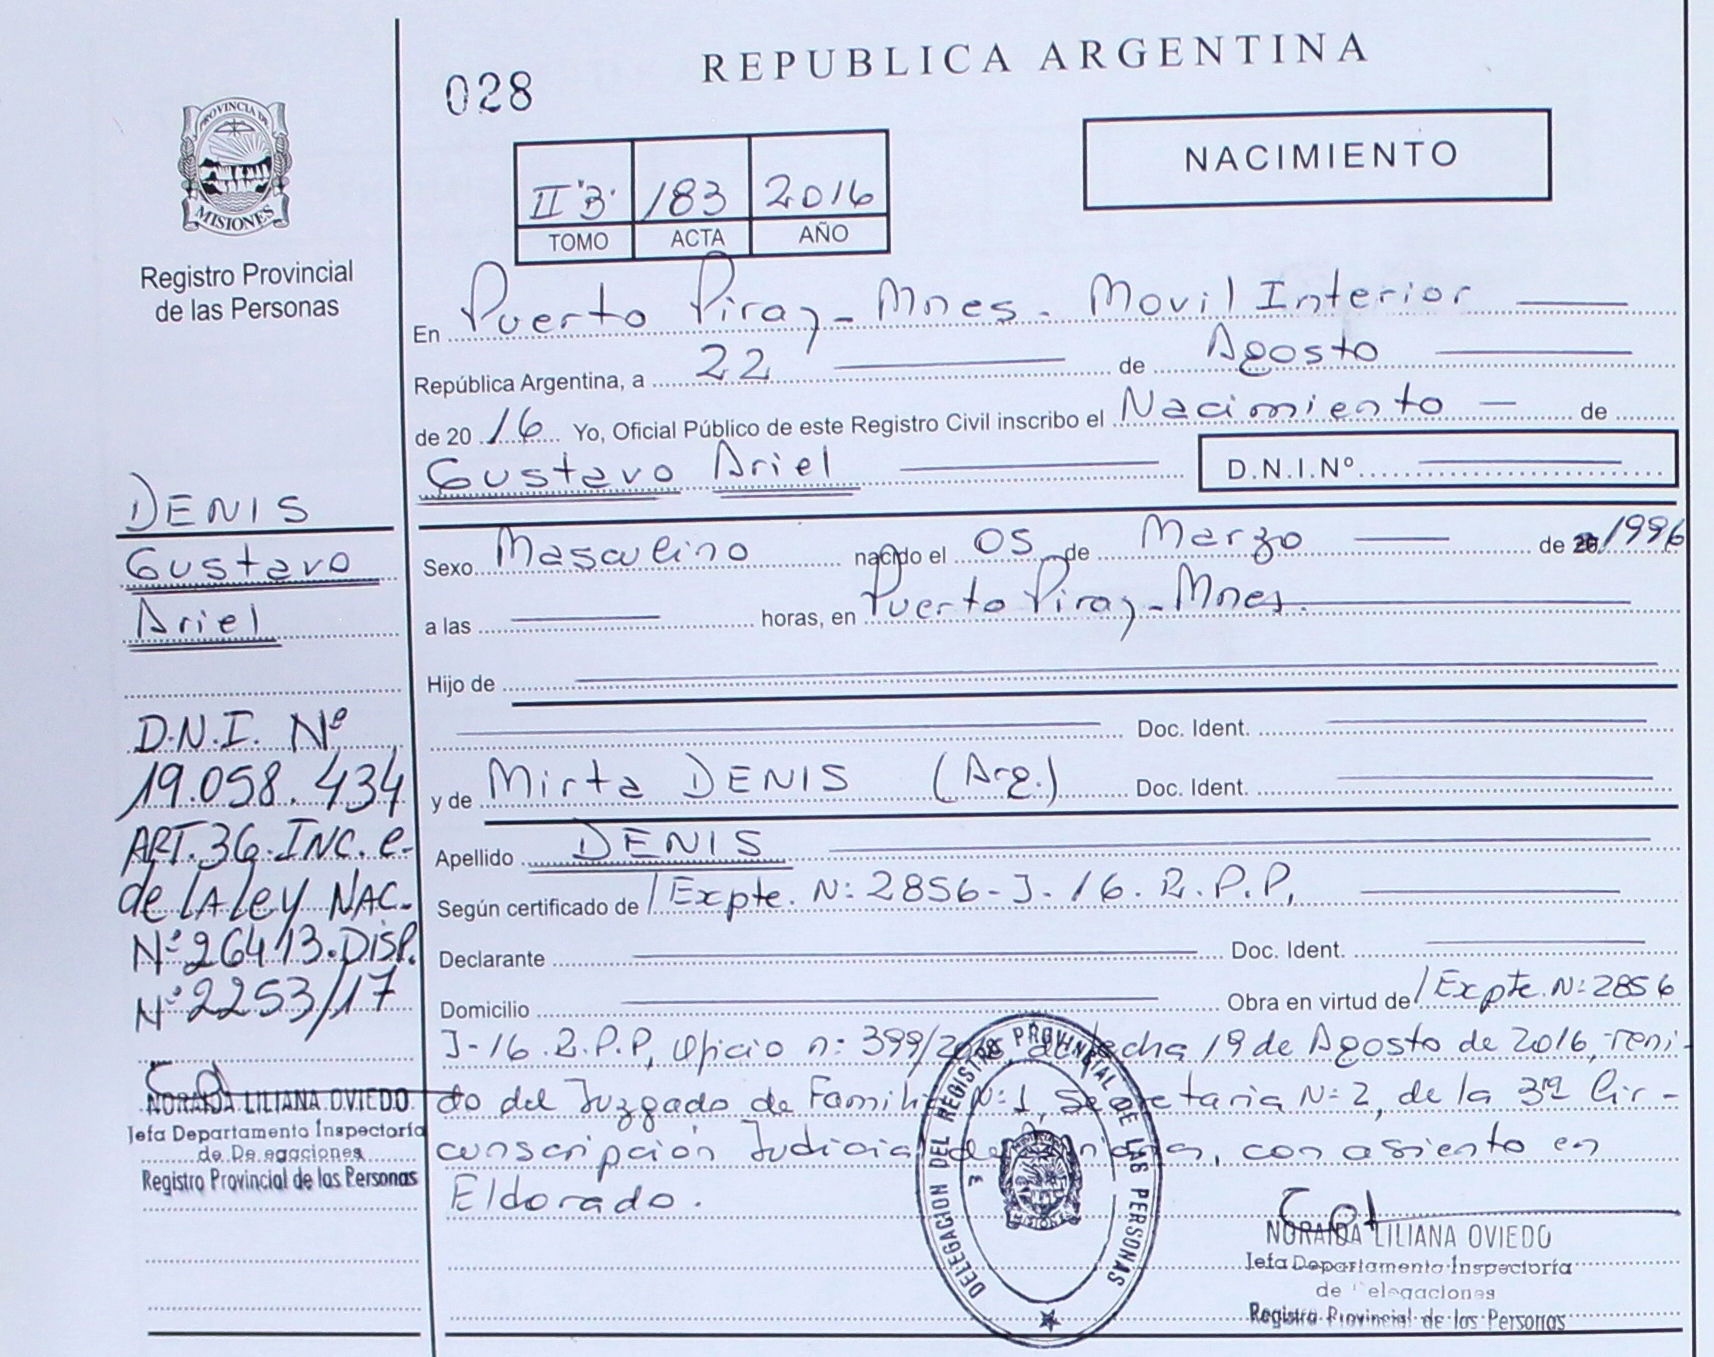 REPUBLICA ARGENTINA
028
NACIMIENTO
II "B" 183 2016
TOMO ACTA AÑO
PROVINCIA DE
MISIONES
Registro Provincial
de las Personas
En Puerto Piray - Mnes - Movil Interior
República Argentina, a 22 de Agosto
de 2016 Yo, Oficial Público de este Registro Civil inscribo el Nacimiento de
Gustavo Ariel D.N.I.Nº
Sexo Masculino nacido el 05 de Marzo de 1996
a las horas, en Puerto Piray - Mnes.
Hijo de
Doc. Ident.
y de Mirta DENIS (Arg.) Doc. Ident.
Apellido DENIS
Según certificado de / Expte. N: 2856-J-16. R.P.P,
Declarante Doc. Ident.
Domicilio Obra en virtud de / Expte. N: 2856
J-16.R.P.P, Oficio n: 399/ fecha 19 de Agosto de 2016, remi-
do del Juzgado de Familia N:1, Secretaria N:2, de la 3ra Cir-
cunscripción Judicial de , con asiento en
Eldorado.
DENIS
Gustavo
Ariel
D.N.I. Nº
19.058.434
ART.36.INC.e-
de LA Ley NAC.
Nº 26413.DISP.
Nº 2253/17
NORAIDA LILIANA OVIEDO
Jefa Departamento Inspectoría
de De egaciones
Registro Provincial de las Personas
DELEGACION DEL REGISTRO PROVINCIAL DE LAS PERSONAS
MISIONES
NORAIDA LILIANA OVIEDO
Jefa Departamento Inspectoría
de elegaciones
Registro Provincial de las Personas